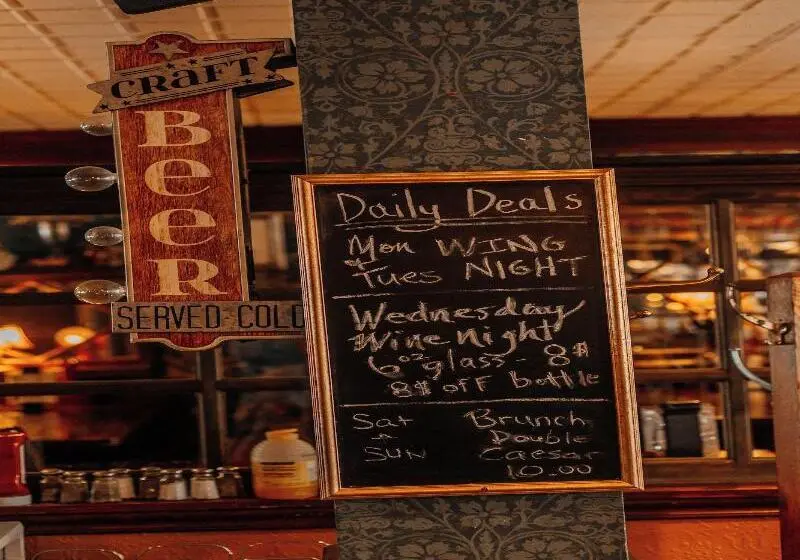 CRAFT
BEER
SERVED COLD
Daily Deals
Mon WING
& Tues NIGHT
Wednesday
Wine night
6oz glass - 8$
8$ off bottle
Sat Brunch
→ Double
SUN Caesar
10.00